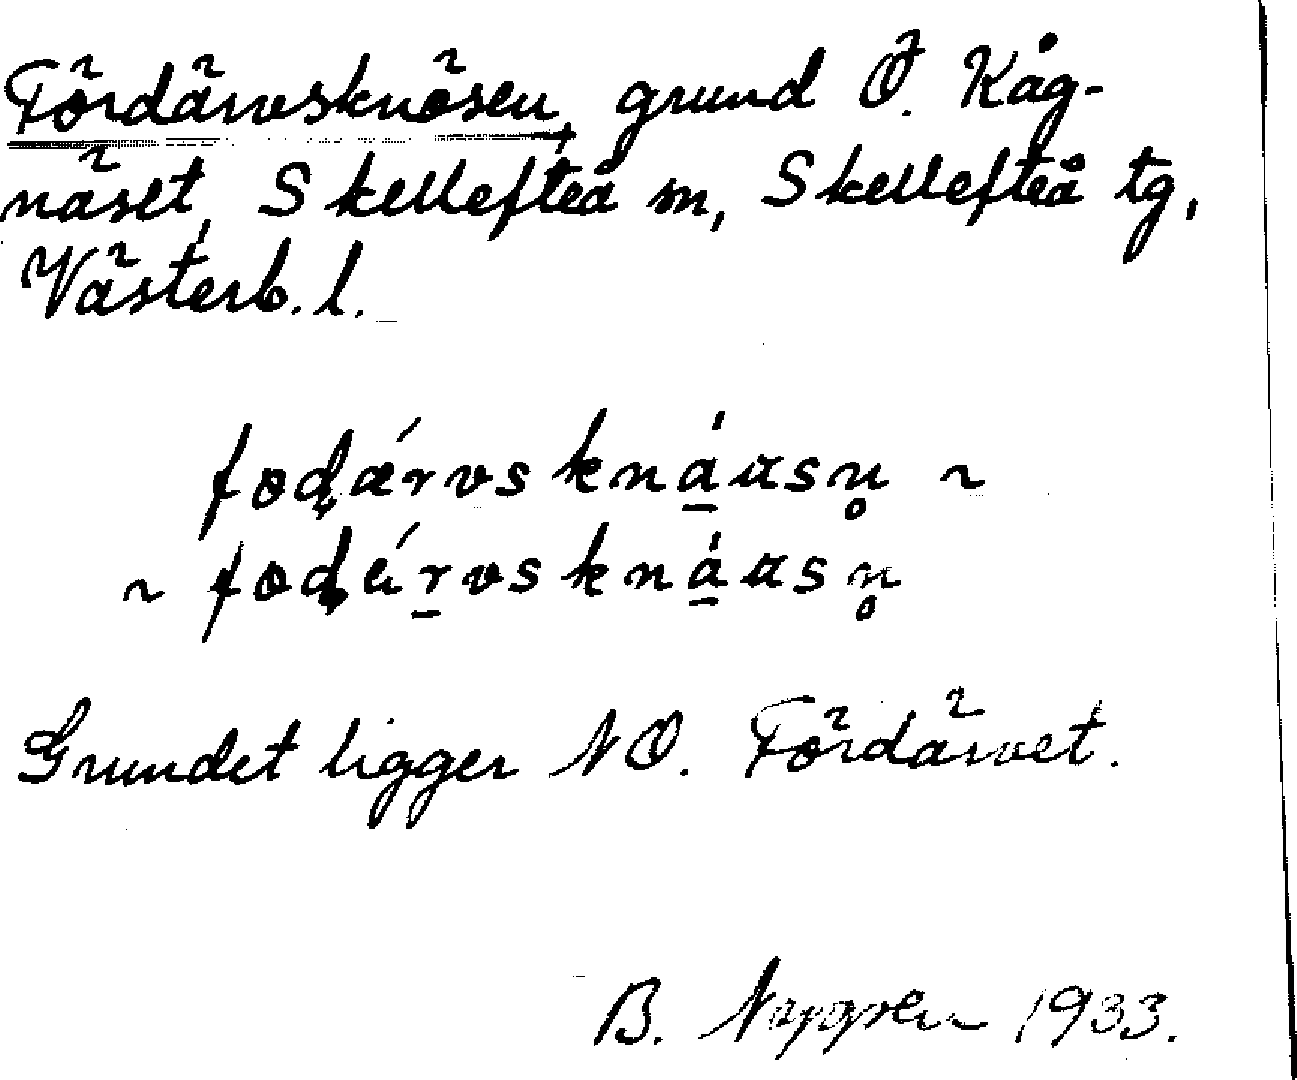 Fördärvsknösen, grund Ö. Kåg-
näset, Skellefteå sn, Skellefteå tg,
Västerb. l.
fɷḍǽrvs kná̱ɑsn̥ ~
~ fɷḍér̠vs kná̱ɑsn̥
Grundet ligger NO. Fördärvet.
B. Nygren 1933.